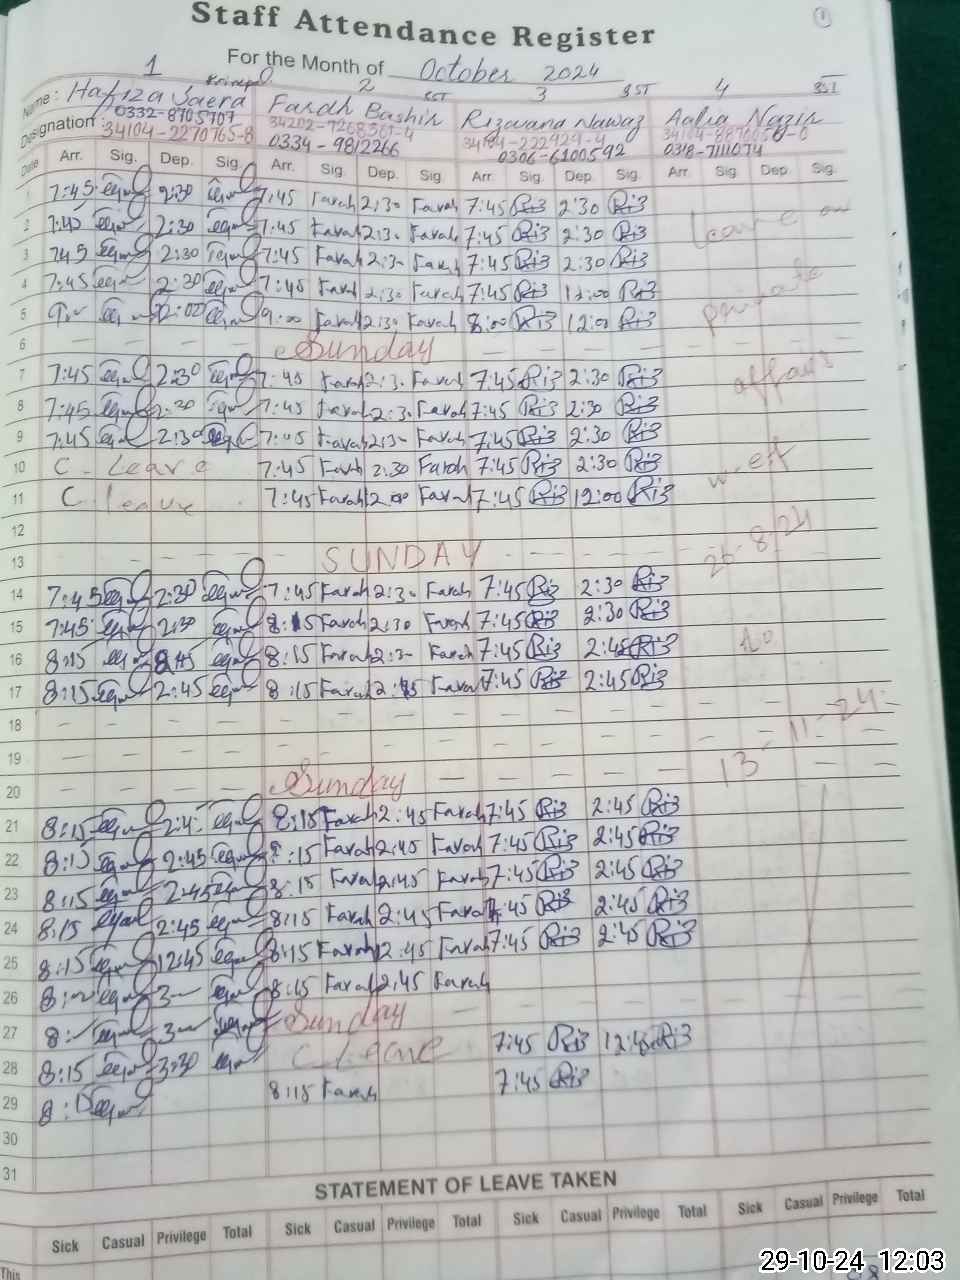 Staff Attendance Register
1
For the Month of October 2024
1 Principal 2 SST 3 SST 4 SST
Name: Hafiza Farah Bashir Rizwana Nawaz Aalia Nazir
Designation: 0332-8705707
34104-2270765-8 0334-9812266 0306-6100592 0318-7111074
Date Arr. Sig. Dep. Sig. Arr. Sig. Dep. Sig. Arr. Sig. Dep. Sig. Arr. Sig. Dep. Sig.
1 7:45 2:30 7:45 Farah 2:30 Farah 7:45 Riz 2:30 Riz
2 7:45 2:30 7:45 Farah 2:30 Farah 7:45 Riz 2:30 Riz Leave on
3 7:45 2:30 7:45 Farah 2:30 Farah 7:45 Riz 2:30 Riz
4 7:45 2:30 7:45 Farah 2:30 Farah 7:45 Riz 12:00 Riz
5 12:00 9:00 Farah 2:30 Farah 8:00 Riz 12:00 Riz private
6 Sunday
7 7:45 2:30 7:45 Farah 2:30 Farah 7:45 Riz 2:30 Riz affairs
8 7:45 2:30 7:45 Farah 2:30 Farah 7:45 Riz 2:30 Riz
9 7:45 2:30 7:45 Farah 2:30 Farah 7:45 Riz 2:30 Riz
10 C. Leave 7:45 Farah 2:30 Farah 7:45 Riz 2:30 Riz w.ef
11 C. leave 7:45 Farah 12:00 Farah 7:45 Riz 12:00 Riz
12
13 SUNDAY 26-8/24
14 7:45 2:30 7:45 Farah 2:30 Farah 7:45 Riz 2:30 Riz
15 7:45 2:30 8:15 Farah 2:30 Farah 7:45 Riz 2:30 Riz
16 8:15 2:45 8:15 Farah 2:30 Farah 7:45 Riz 2:45 Riz to
17 8:15 2:45 8:15 Farah 2:45 Farah 7:45 Riz 2:45 Riz
18
19 13-11-24
20 Sunday
21 8:15 2:45 8:15 Farah 2:45 Farah 7:45 Riz 2:45 Riz
22 8:15 2:45 8:15 Farah 2:45 Farah 7:45 Riz 2:45 Riz
23 8:15 2:45 8:15 Farah 2:45 Farah 7:45 Riz 2:45 Riz
24 8:15 2:45 8:15 Farah 2:45 Farah 7:45 Riz 2:45 Riz
25 8:15 12:45 8:15 Farah 2:45 Farah 7:45 Riz 2:45 Riz
26 8:15 Farah 2:45 Farah
27 Sunday
28 8:15 3:30 C Leave 7:45 Riz 12:45 Riz
29 8:15 Farah 7:45 Riz
30
31
STATEMENT OF LEAVE TAKEN
Sick Casual Privilege Total Sick Casual Privilege Total Sick Casual Privilege Total Sick Casual Privilege Total
This
29-10-24 12:03